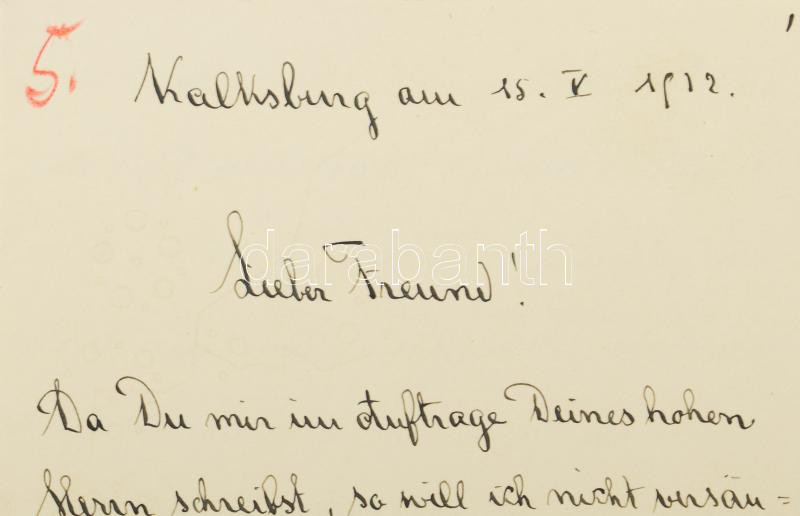 5.
Kalksburg am 15. V 1912.
Lieber Freund!
darabanth
Da Du mir im Auftrage Deines hohen
Herrn schreibst, so will ich nicht versäu=